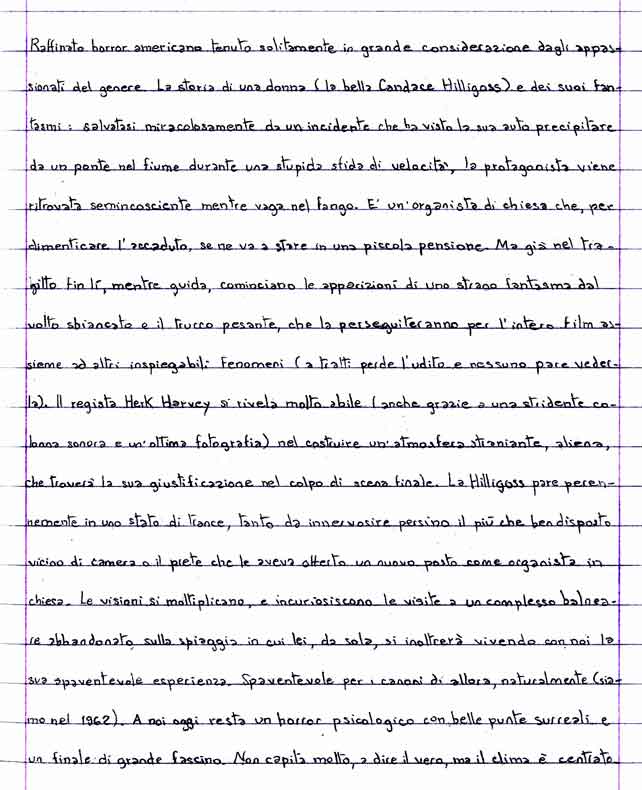 Raffinato horror americano tenuto solitamente in grande considerazione dagli appas-
sionati del genere. La storia di una donna (la bella Candace Hilligoss) e dei suoi fan-
tasmi: salvatasi miracolosamente da un incidente che ha visto la sua auto precipitare
da un ponte nel fiume durante una stupida sfida di velocità, la protagonista viene
ritrovata semincosciente mentre vaga nel fango. E' un'organista di chiesa che, per
dimenticare l'accaduto, se ne va a stare in una piccola pensione. Ma già nel tra-
gitto fin lì, mentre guida, cominciano le apparizioni di uno strano fantasma dal
volto sbiancato e il trucco pesante, che la perseguiteranno per l'intero film as-
sieme ad altri inspiegabili fenomeni (a tratti perde l'udito e nessuno pare veder-
la). Il regista Herk Harvey si rivela molto abile (anche grazie a una stridente co-
lonna sonora e un'ottima fotografia) nel costruire un'atmosfera straniante, aliena,
che troverà la sua giustificazione nel colpo di scena finale. La Hilligoss pare peren-
nemente in uno stato di trance, tanto da innervosire persino il più che ben disposto
vicino di camera o il prete che le aveva offerto un nuovo posto come organista in
chiesa. Le visioni si moltiplicano, e incuriosiscono le visite a un complesso balnea-
re abbandonato sulla spiaggia in cui lei, da sola, si inoltrerà vivendo con noi la
sua spaventevole esperienza. Spaventevole per i canoni di allora, naturalmente (sia-
mo nel 1962). A noi oggi resta un horror psicologico con belle punte surreali e
un finale di grande fascino. Non capita molto, a dire il vero, ma il clima è centrato